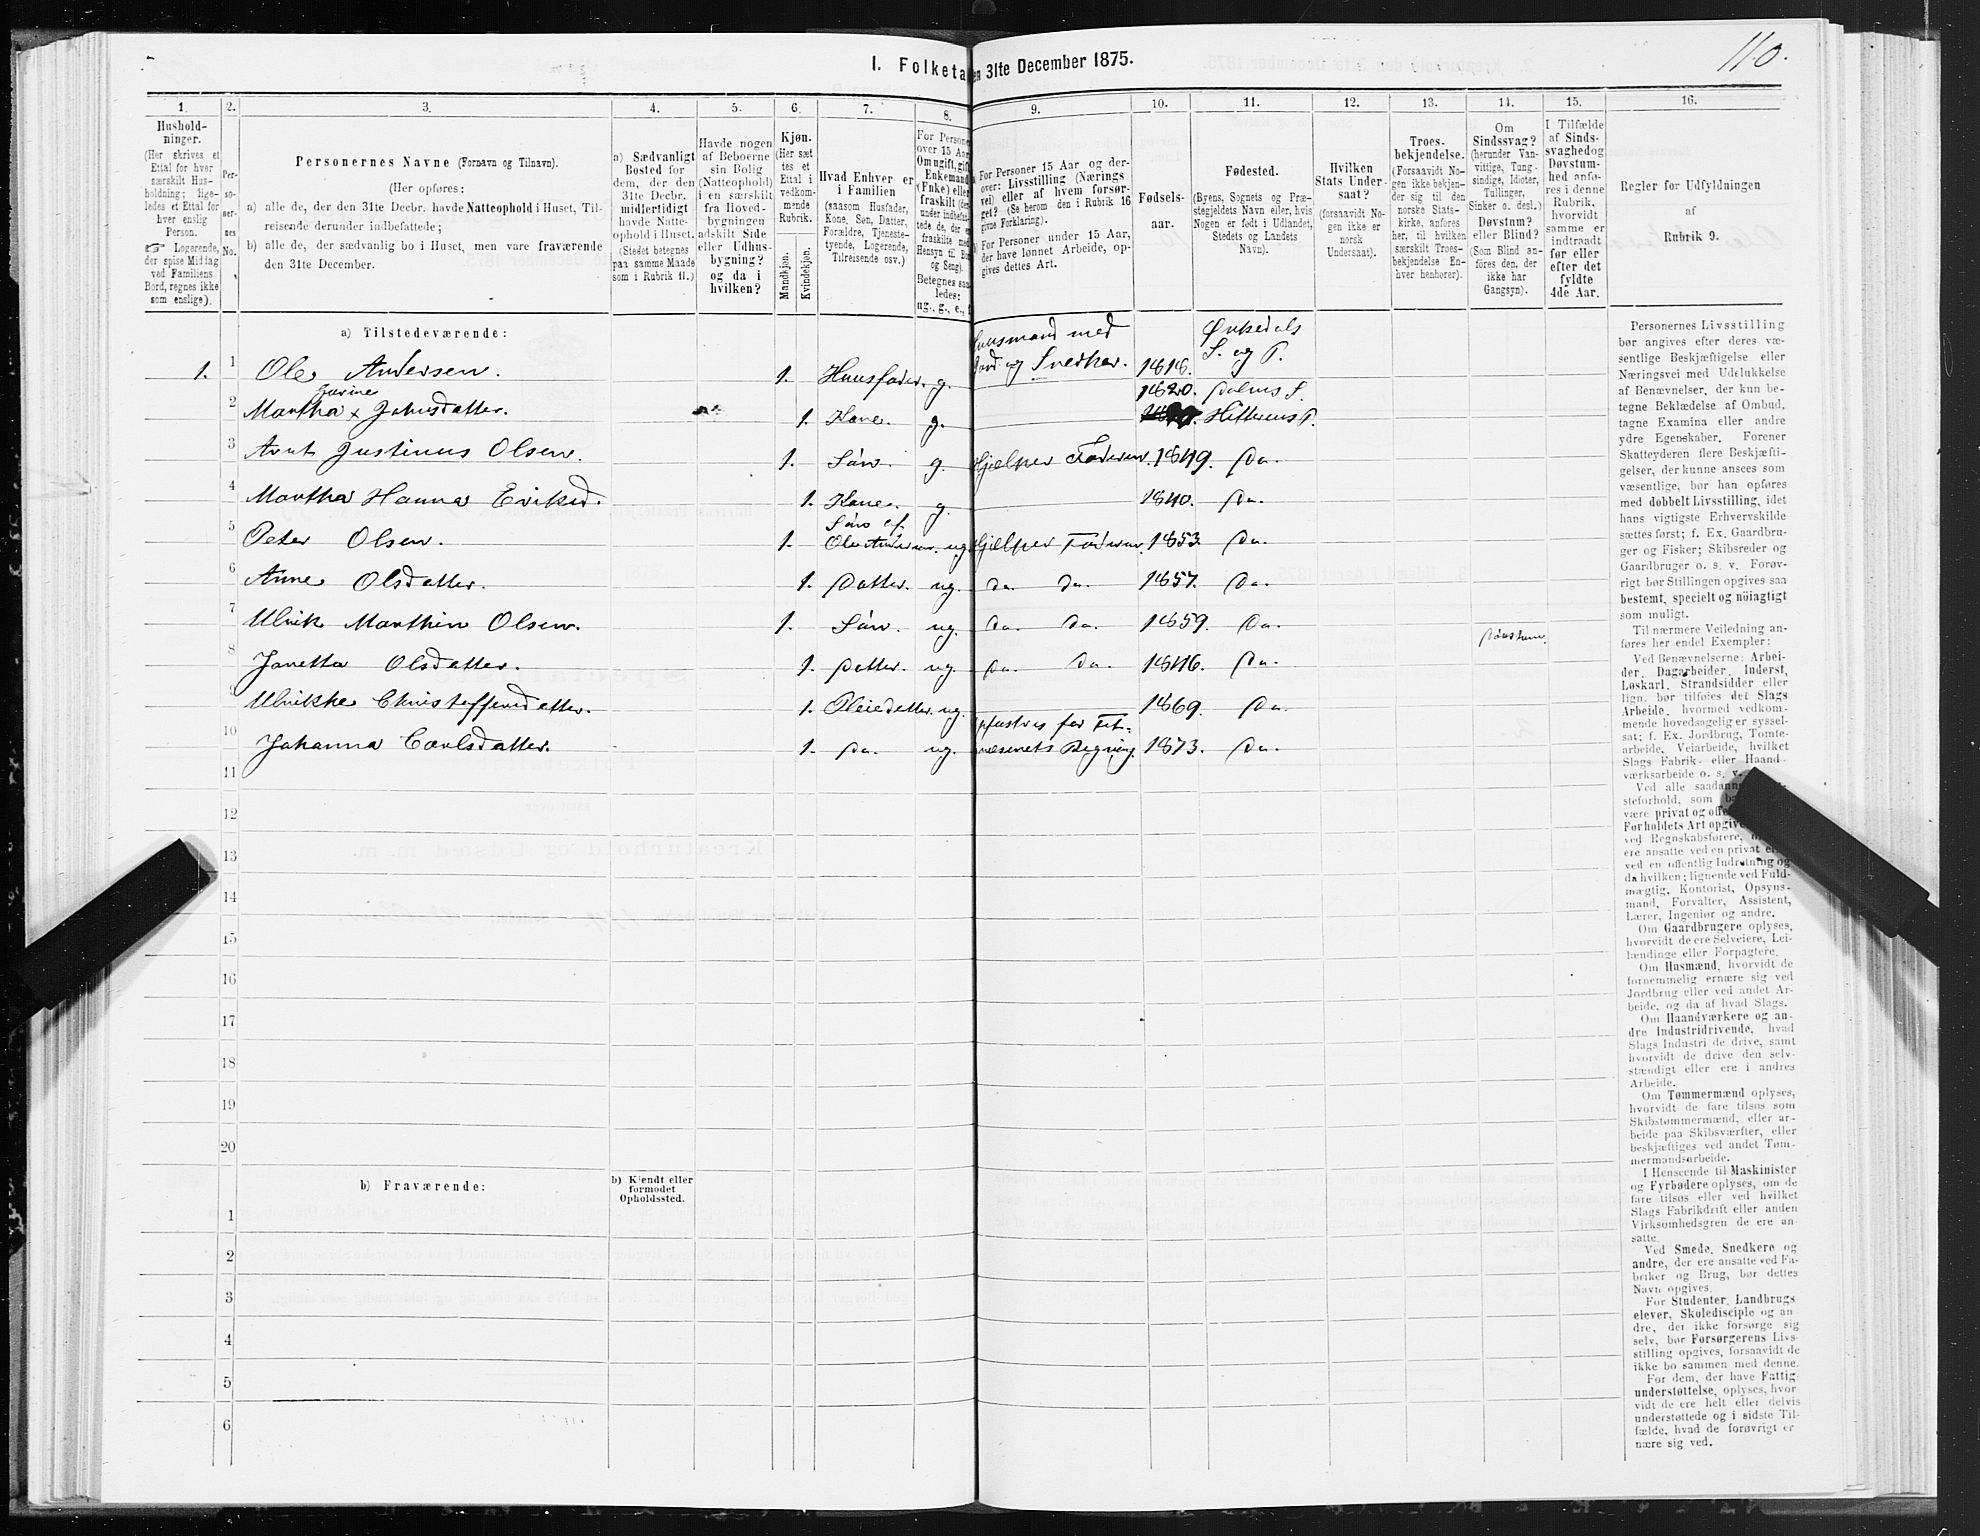 110.
I. Folketa
en 31te December 1875.
1.
2.
3.
4.
5.
6.
7.
8.
9.
10.
11.
12.
13.
14.
15.
16.
Hushold-
ninger.
(Her skrives et
Ettal for hver
særskilt Hus-
holdning; lige-
ledes et Ettal for
hver enslig
Person.
☞ Logerende,
der spise Middag
ved Familiens
Bord, regnes ikke
som enslige).
Per-
so-
ner-
nes
No.
Personernes Navne (Fornavn og Tilnavn).
(Her opføres:
a) alle de, der den 31te Decbr. havde Natteophold i Huset, Til-
reisende derunder indbefattede;
b) alle de, der sædvanlig bo i Huset, men vare fraværende
den 31te December.
a) Sædvanligt
Bosted for
dem, der den
31te Decbr.
midlertidigt
havde Natte-
ophold i Huset.
(Stedet betegnes
paa samme Maade
som i Rubrik 11.)
Havde nogen
af Beboerne
sin Bolig
(Natteophold)
i en særskilt
fra Hoved-
bygningen
adskilt Side
eller Udhus-
bygning?
og da i
hvilken?
Kjøn.
(Her sæt
tes et
Ettal i
vedkom-
mende
Rubrik.
Mandkjøn.
Kvindekjøn.
Hvad Enhver er
i Familien
(saasom Husfader,
Kone, Søn, Datter,
Forældre, Tjeneste-
tyende, Logerende,
Tilreisende osv.)
For Persone
over 15 Aar
Om ugift, gift
Enkemand
(Enke) eller
fraskilt (der-
under indbefat-
tede de, der e
fraskilte med
Hensyn til Bo
og Seng).
Betegnes saa
ledes:
ug., g., e., f
For Personer 15 Aar og der-
over: Livsstilling (Nærings
vei) eller af hvem forsør-
get? (Se herom den i Rubrik 16
givne Forklaring).
For Personer under 15 Aar,
der have lønnet Arbeide, op-
gives dettes Art.
Fødsels-
aar.
Fødested.
(Byens, Sognets og Præ-
stegjeldets Navn eller, hvis
Nogen er født i Udlandet,
Stedets og Landets
Navn).
Hvilken
Stats Under-
saat?
(forsaavidt No-
gen ikke er
norsk
Undersaat).
Troes-
bekjendelse.
(Forsaavidt No-
gen ikke bekjen-
der sig til den
norske Stats-
kirke, anføres
her, til hvilken
særskilt Troes-
bekjendelse En-
hver henhører).
Om
Sindssvag?
(herunder Van-
vittige, Tung-
sindige, Idioter,
Tullinger,
Sinker o. desl.)
Døvstum?
eller Blind?
(Som Blind an-
føres den, der
ikke har
Gangsyn).
I Tilfælde
af Sinds-
svaghed og
Døvstum-
hed anfø-
res i denne
Rubrik,
hvorvidt
samme er
indtraadt
før eller
efter det
fyldte
4de Aar.
Regler for Udfyldningen
af
Rubrik 9.
a) Tilstedeværende:
1. 1 Ole Andersen. 1. Huusfader. g. Huusmand med Jord og Snedker. 1818. Ørkedals S. og P.
Gurine
2 Martha x Johnsdatter. 1. Kone. g. 1820. Dolms S. Hitterens P.
3 Arnt Justinus Olsen. 1. Søn. g. Hjælper Faderen. 1849. Do.
4 Martha Hanna Eriksd. 1. Kone. g. 1840. Do.
5 Peter Olsen. 1. Søn af Ole Andersen. ug. Hjælper Faderen. 1853. Do.
6 Anne Olsdatter. 1. Datter. ug. Do. Do. 1857. Do.
7 Ulrik Marthin Olsen. 1. Søn. ug. Do. Do. 1859. Do.
8 Janetta Olsdatter. 1. Datter. ug. Do. Do. 1846. Do. Døvstum.
9 Ulrikke Christoffersdatter. 1. Pleiedatter. ug. 1869. Do.
10 Johanna Carlsdatter. 1. Do. ug. opfostres for Fat- væsenets Regning. 1873. Do.
11
12
13
14
15
16
17
18
19
20
b) Fraværende:
b) Kjendt eller
formodet
Opholdssted.
1
2
3
4
5
6
Personernes Livsstilling
bør angives efter deres væ-
sentlige Beskjæftigelse eller
Næringsvei med Udelukkelse
af Benævnelser, der kun be-
tegne Beklædelse af Ombud,
tagne Examina eller andre
ydre Egenskaber. Forener
Skatteyderen flere Beskjæfti-
gelser, der kunne ansees som
væsentlige, bør han opføres
med dobbelt Livsstilling, idet
hans vigtigste Erhvervskilde
sættes først; f. Ex. Gaardbru-
ger og Fisker; Skibsreder og
Gaardbruger o. s. v. Forøv-
rigt bør Stillingen opgives saa
bestemt, specielt og nöiagtigt
som muligt.
Til nærmere Veiledning an-
føres her endel Exempler:
Ved Benævnelserne: Arbei-
der, Dagarbeider, Inderst,
Løskarl, Strandsidder eller
lign. bør tilføies det Slags
Arbeide, hvormed vedkom-
mende hovedsagelig er syssel-
sat; f. Ex. Jordbrug, Tomte-
arbeide, Veiarbeide, hvilket
Slags Fabrik- eller Haand-
værksarbeide o. s. v.
Ved alle saadanne
steforhold, som
være privat og
Forholdets Art
ved Regnskabsførere,
ere ansatte ved en privat
ved en offentlig Indretning og
da hvilken; lignende ved Fuld-
mægtig, Kontorist, Opsyns-
mand, Forvalter, Assistent,
Lærer, Ingeniør og andre.
Om Gaardbrugere oplyses,
hvorvidt de ere Selveiere, Lei-
lændinge eller Forpagtere.
Om Husmænd, hvorvidt de
fornemmelig ernære sig ved
Jordbrug eller ved andet Ar-
beide, og da af hvad Slags.
Om Haandværkere og an-
dre Industridrivende, hvad
Slags Industri de drive, samt
hvorvidt de drive den selv-
stændigt eller ere i andres
Arbeide.
Om Tømmermænd oplyses,
hvorvidt de fare tilsøs som
Skibstømmermænd, eller ar-
beide paa Skibsværfter, eller
beskjæftiges ved andet Tøm-
mermandsarbeide.
I Henseende til Maskinister
og Fyrbødere oplyses, om de
fare tilsøs eller ved hvilket
Slags Fabrikdrift eller anden
Virksomhedsgren de ere an-
satte.
Ved Smede, Snedkere og
andre, der ere ansatte ved Fa-
briker og Brug, bør dettes
Navn opgives.
For Studenter, Landbrugs-
elever, Skoledisciple og an-
dre, der ikke forsørge sig
selv, bør Forsørgerens Livs-
stilling opgives, forsaavidt de
ikke bo sammen med denne.
For dem, der have Fattig-
understøttelse, oplyses, hvor
vidt de ere helt eller delvis
understøttede og i sidste Til-
fælde, hvad de forøvrigt er
nære sig ved.